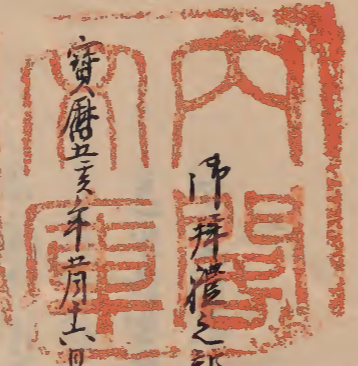 内閣
文庫
御拝禮之
寶暦五亥年月十六日